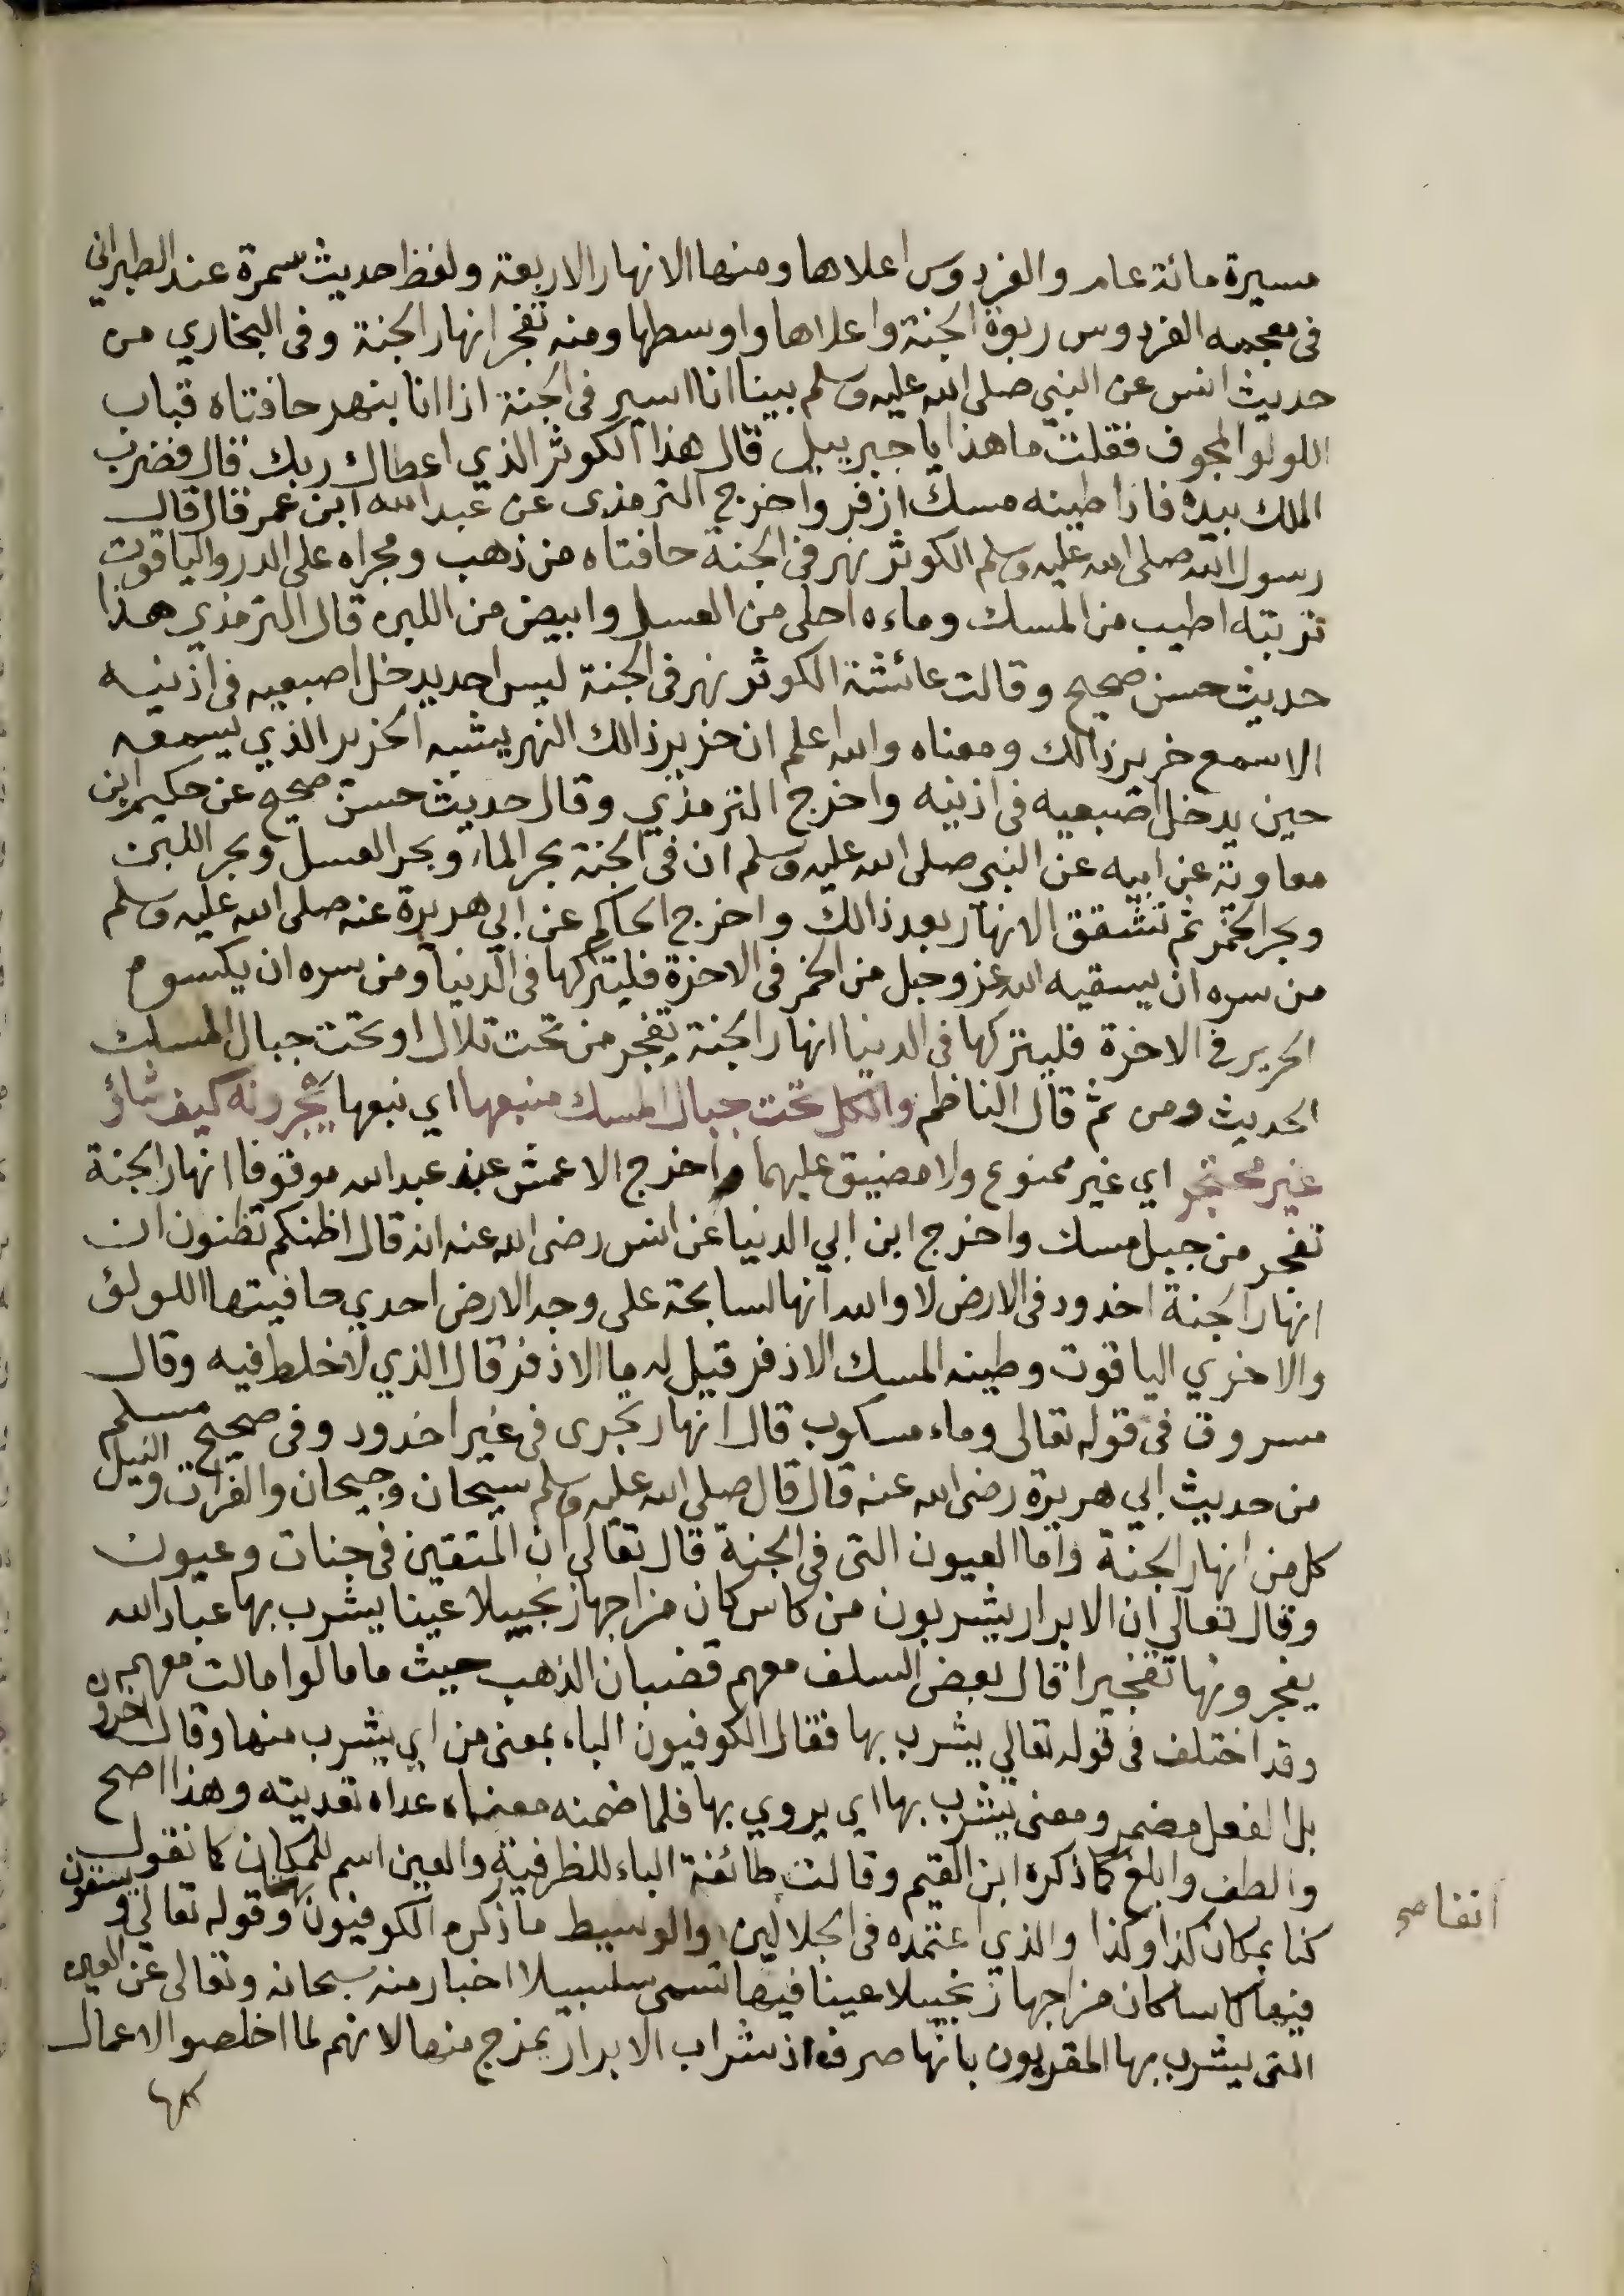 مسيرة مائة عام والفردوس اعلاها ومنها الانهار الاربعة ولفظ حديث سمرة عند الطبراني
في معجمه الفردوس ربوة الجنة واعلاها واوسطها ومنه تفجر انهار الجنة وفي البخاري من
حديث انس عن النبي صلى الله عليه وسلم بينا انا اسير في الجنة اذا انا بنهر حافتاه قباب
اللولو المجوف فقلت ما هذا يا جبرييل قال هذا الكوثر الذي اعطاك ربك قال فضرب
الملك بيده فاذا طينه مسك ازفر واخرج الترمذي عن عبد الله ابن عمر قال قال
رسول الله صلى الله عليه وسلم الكوثر نهر في الجنة حافتاه من ذهب ومجراه على الدر والياقوت
تربته اطيب من المسك وماءه احلى من العسل وابيض من اللبن قال الترمذي هذا
حديث حسن صحيح وقالت عائشة الكوثر نهر في الجنة ليس احد يدخل اصبعيه في اذنيه
الا سمع خرير ذالك ومعناه والله اعلم ان خرير ذالك النهر يشبه الخرير الذي يسمعه
حين يدخل اصبعيه في اذنيه واخرج الترمذي وقال حديث حسن صحيح عن حكيم ابن
معاوية عن ابيه عن النبي صلى الله عليه وسلم ان في الجنة بحر الماء وبحر العسل وبحر اللبن
وبحر الخمر ثم تشقق الانهار بعد ذالك واخرج الحاكم عن ابي هريرة عنه صلى الله عليه وسلم
من سره ان يسقيه الله عز وجل من الخمر في الاخرة فليتركها في الدنيا ومن سره ان يكسوه
الحرير في الاخرة فليتركها في الدنيا انهار الجنة تفجر من تحت تلال او تحت جبال المسك
الحديث ومن ثم قال الناظم والكل تحت جبال المسك منبعها اي نبعها يجرونه كيف شاؤ
غير محتجر اي غير ممنوع ولا مضيق عليهما واخرج الاعمش عن عبد الله موقوفا انهار الجنة
تفجر من جبل مسك واخرج ابن ابي الدنيا عن انس رضى الله عنه انه قال اظنكم تظنون ان
انهار الجنة اخدود في الارض لا والله انها لسابحة على وجه الارض احدي حافيتها اللولؤ
والاخري الياقوت وطينه المسك الاذفر قيل له ما الاذفر قال الذي لا خلط فيه وقال
مسروق في قوله تعالى وماء مسكوب قال انهار تجرى في غير اخدود وفي صحيح مسلم
من حديث ابي هريرة رضى الله عنه قال قال صلى الله عليه وسلم سيحان وجيحان والفرات والنيل
كل من انهار الجنة واما العيون التى في الجنة قال تعالى ان المتقين في جنات وعيون
وقال تعالى ان الابرار يشربون من كاس كان مزاجها زنجبيلا عينا يشرب بها عباد الله
يفجرونها تفجيرا قال بعض السلف معهم قضبان الذهب حيث ما مالوا مالت معهم
وقد اختلف في قوله تعالي يشرب بها فقال الكوفيون الباء بمعنى من اي يشرب منها وقال اخرون
بل الفعل مضمر ومعنى يشرب بها اي يروي بها فلما ضمنه معناه عداه تعديته وهذا اصح
والطف وابلغ كما ذكره ابن القيم وقالت طائفة الباء للظرفية والعين اسم للمكان كما تقول
كنا بمكان كذا وكذا والذي اعتمده في الجلالين والوسيط ما ذكره الكوفيون وقوله تعالي ويسقون
فيها كاسا كان مزاجها زنجبيلا عينا فيها تسمى سلسبيلا اخبار منه سبحانه وتعالى عن العين
التى يشرب بها المقربون بانها صرفه اذ شراب الابرار يمزج منها لانهم لما اخلصوا الاعمال
كلها